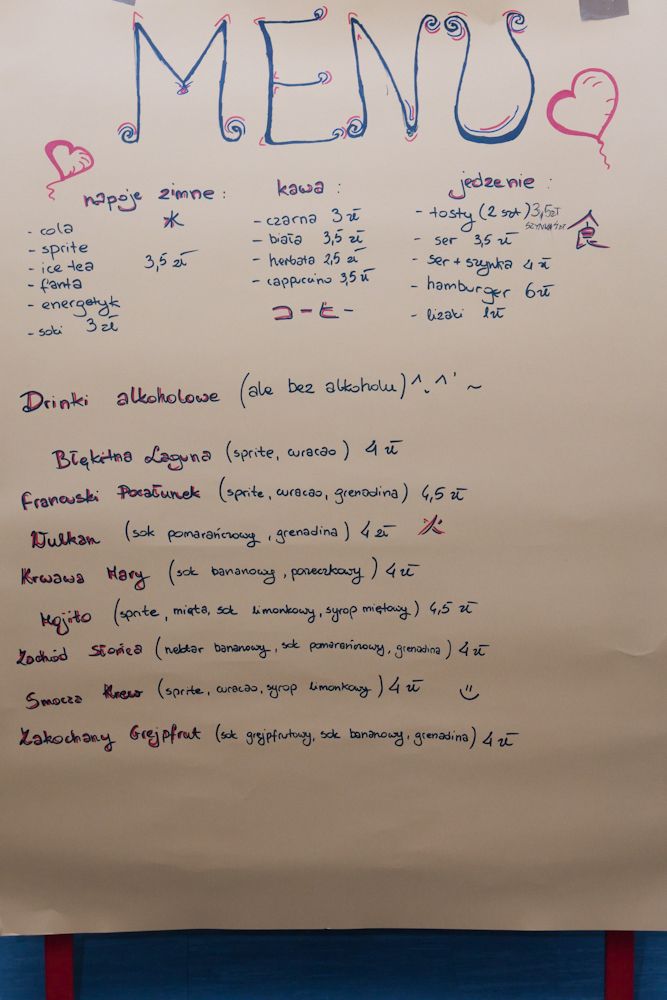 MENU
napoje zimne :
水
- cola
- sprite
- ice tea 3,5 zł
- fanta
- energetyk
- soki 3 zł
kawa :
- czarna 3 zł
- biała 3,5 zł
- herbata 2,5 zł
- cappuccino 3,5 zł
コーヒー
jedzenie :
- tosty (2 szt) 3,5 zł
- ser 3,5 zł
- ser + szynka 4 zł
- hamburger 6 zł
- lizaki 1 zł
食
Drinki alkoholowe (ale bez alkoholu) ^.^' ~
Błękitna Laguna (sprite, curacao) 4 zł
Francuski Pocałunek (sprite, curacao, grenadina) 4,5 zł
Wulkan (sok pomarańczowy, grenadina) 4 zł 火
Krwawa Mary (sok bananowy, porzeczkowy) 4 zł
Mojito (sprite, mięta, sok limonkowy, syrop miętowy) 4,5 zł
Zachód Słońca (nektar bananowy, sok pomarańczowy, grenadina) 4 zł
Smocza Krew (sprite, curacao, syrop limonkowy) 4 zł
Zakochany Grejpfrut (sok grejpfrutowy, sok bananowy, grenadina) 4 zł